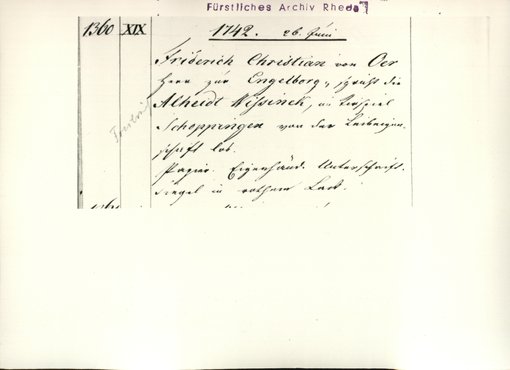 Fürstliches Archiv Rheda
1360 XIX 1742. 26. Juni
Friderich Christian von Oer
Herr zur Engelborg, spricht die
Alheidt Wissinck, im Kirspiel
Schoppingen von der Leibeigen-
schaft los.
Papier. Eigenhänd. Unterschrift.
Siegel in rothem Lack.